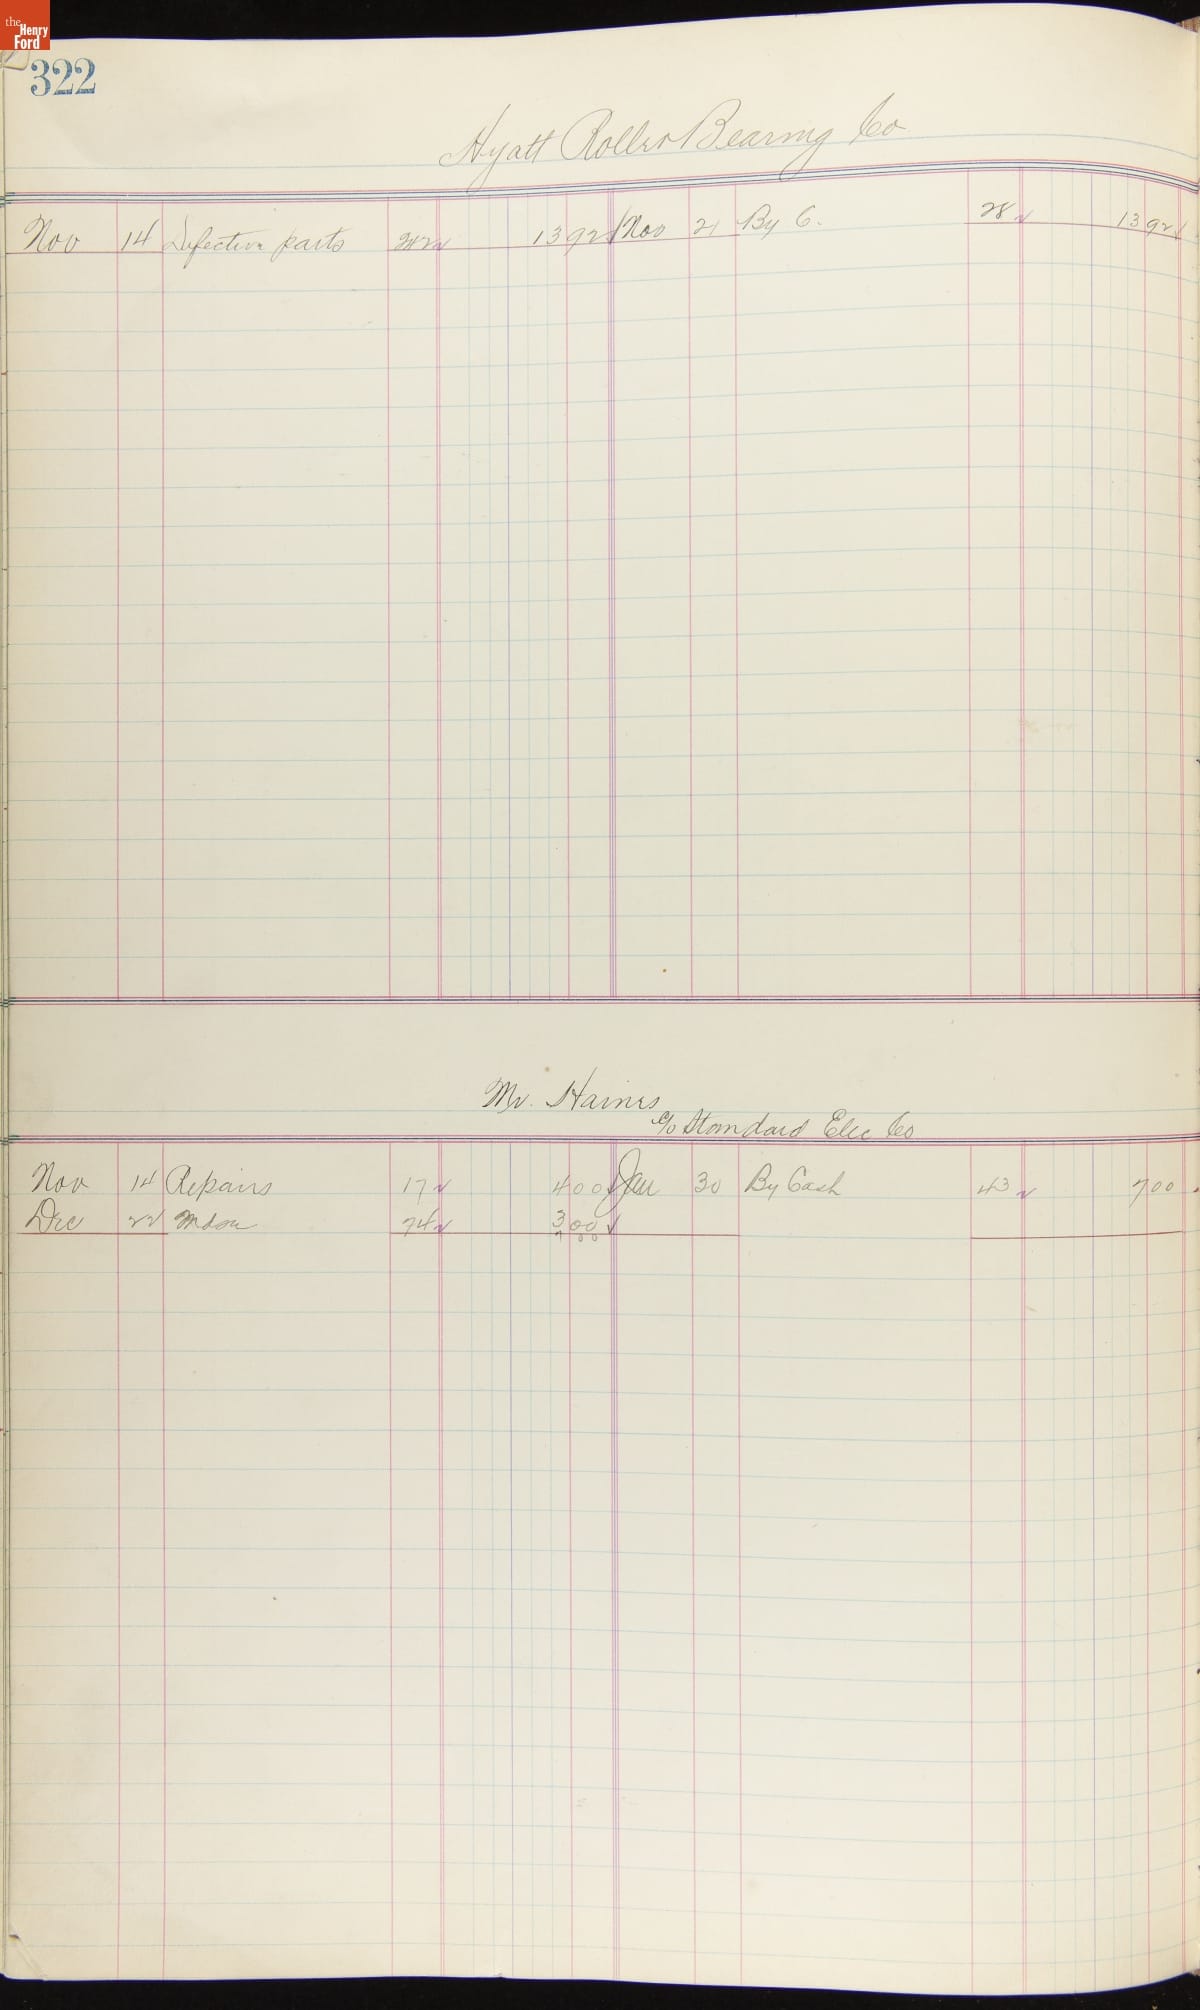 the Henry Ford
322
Hyatt Roller Bearing Co
Nov 14 Defective parts 1392 Nov 21 By C. 28 1392
Mr. Haines
c/o Standard Elec Co
Nov 14 Repairs 17 400 Jan 30 By Cash 43 700
Dec 22 Mdse 74 300
700